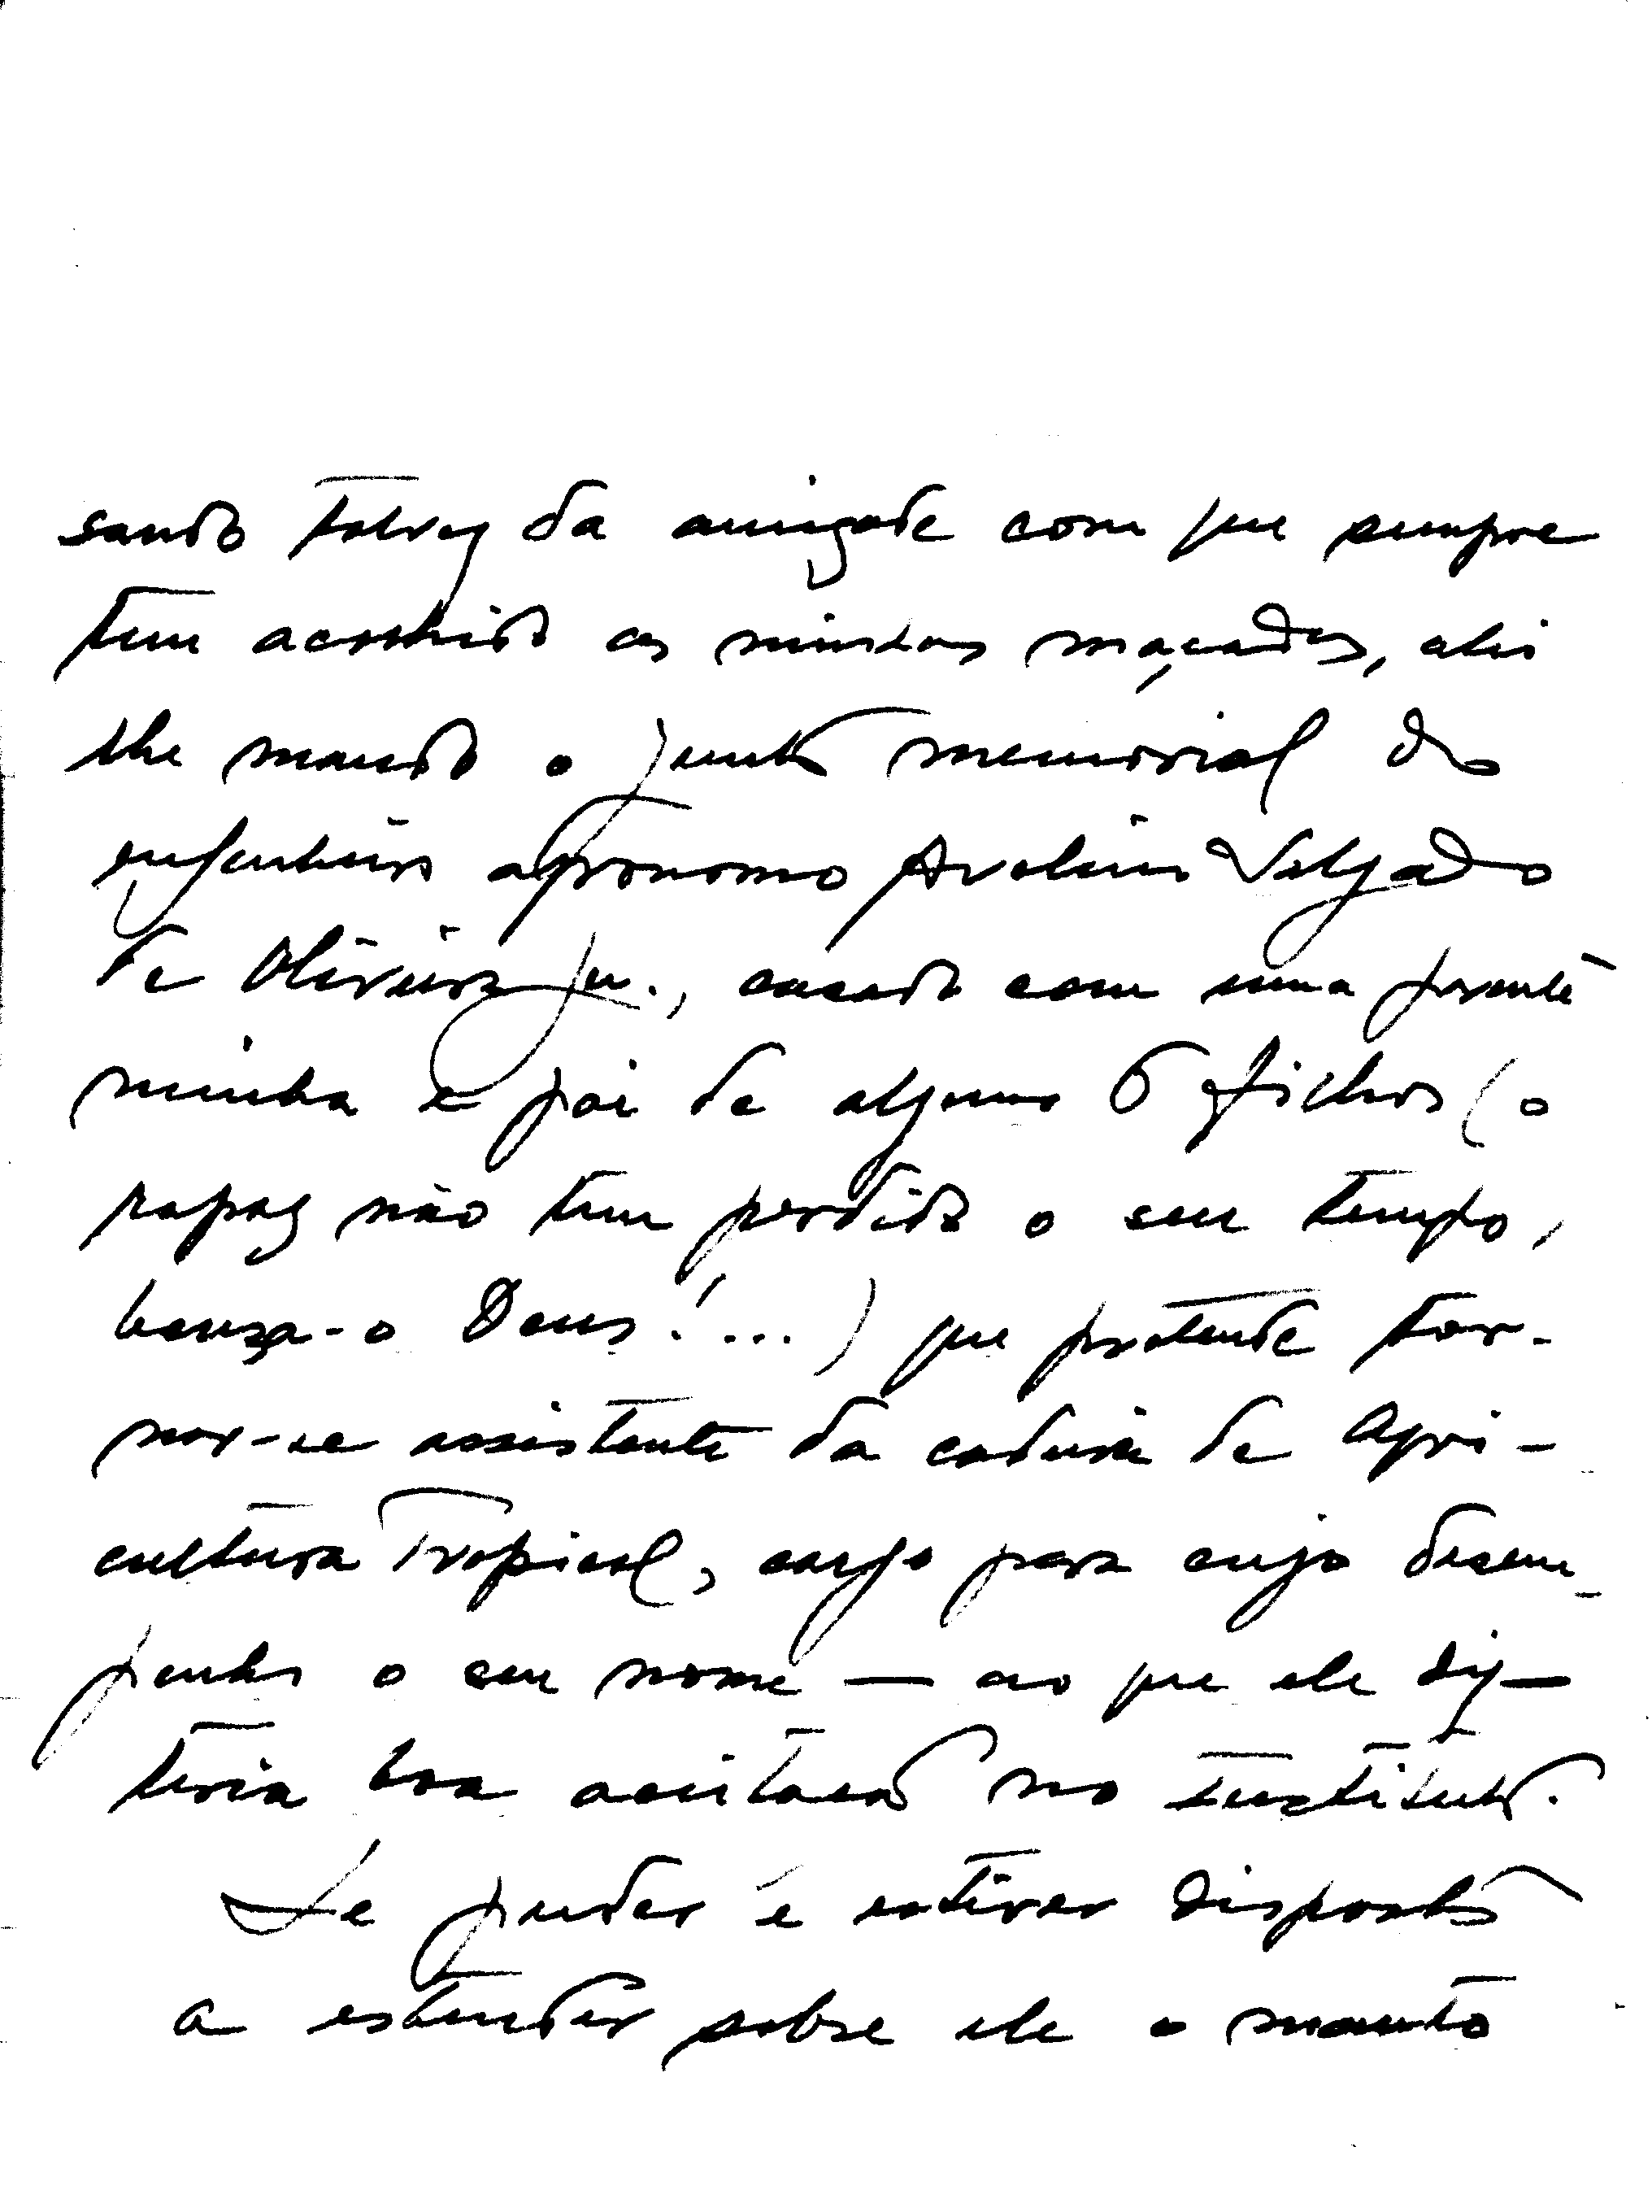 sando talvez da amizade com que sempre
tem acolhido as minhas maçadas, ahi
lhe mando o junto memorial do
engenheiro agronomo Avelino Salgado
de Oliveira Jn., casado com uma parente
minha e pai de alguns 6 filhos (o
rapaz não tem perdido o seu tempo,
benza-o Deus!...) que pretende tor-
nar-se assistente da cadeira de Agri-
cultura Tropical, cargo para cujo desem-
penho o seu nome — ao que ele diz —
teria boa aceitação no Instituto.
Se puder e estiver disposto
a estender sobre ele o manto